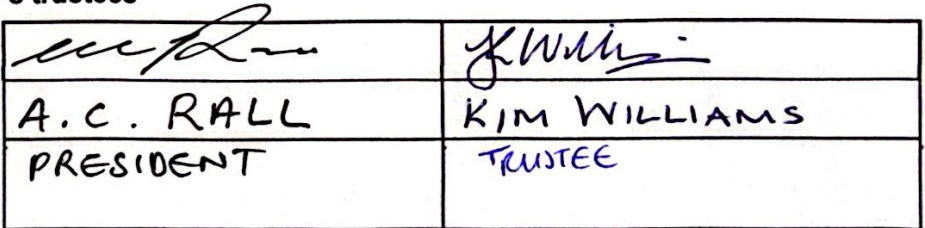 trustees
A. C. RALL KIM WILLIAMS
PRESIDENT TRUSTEE